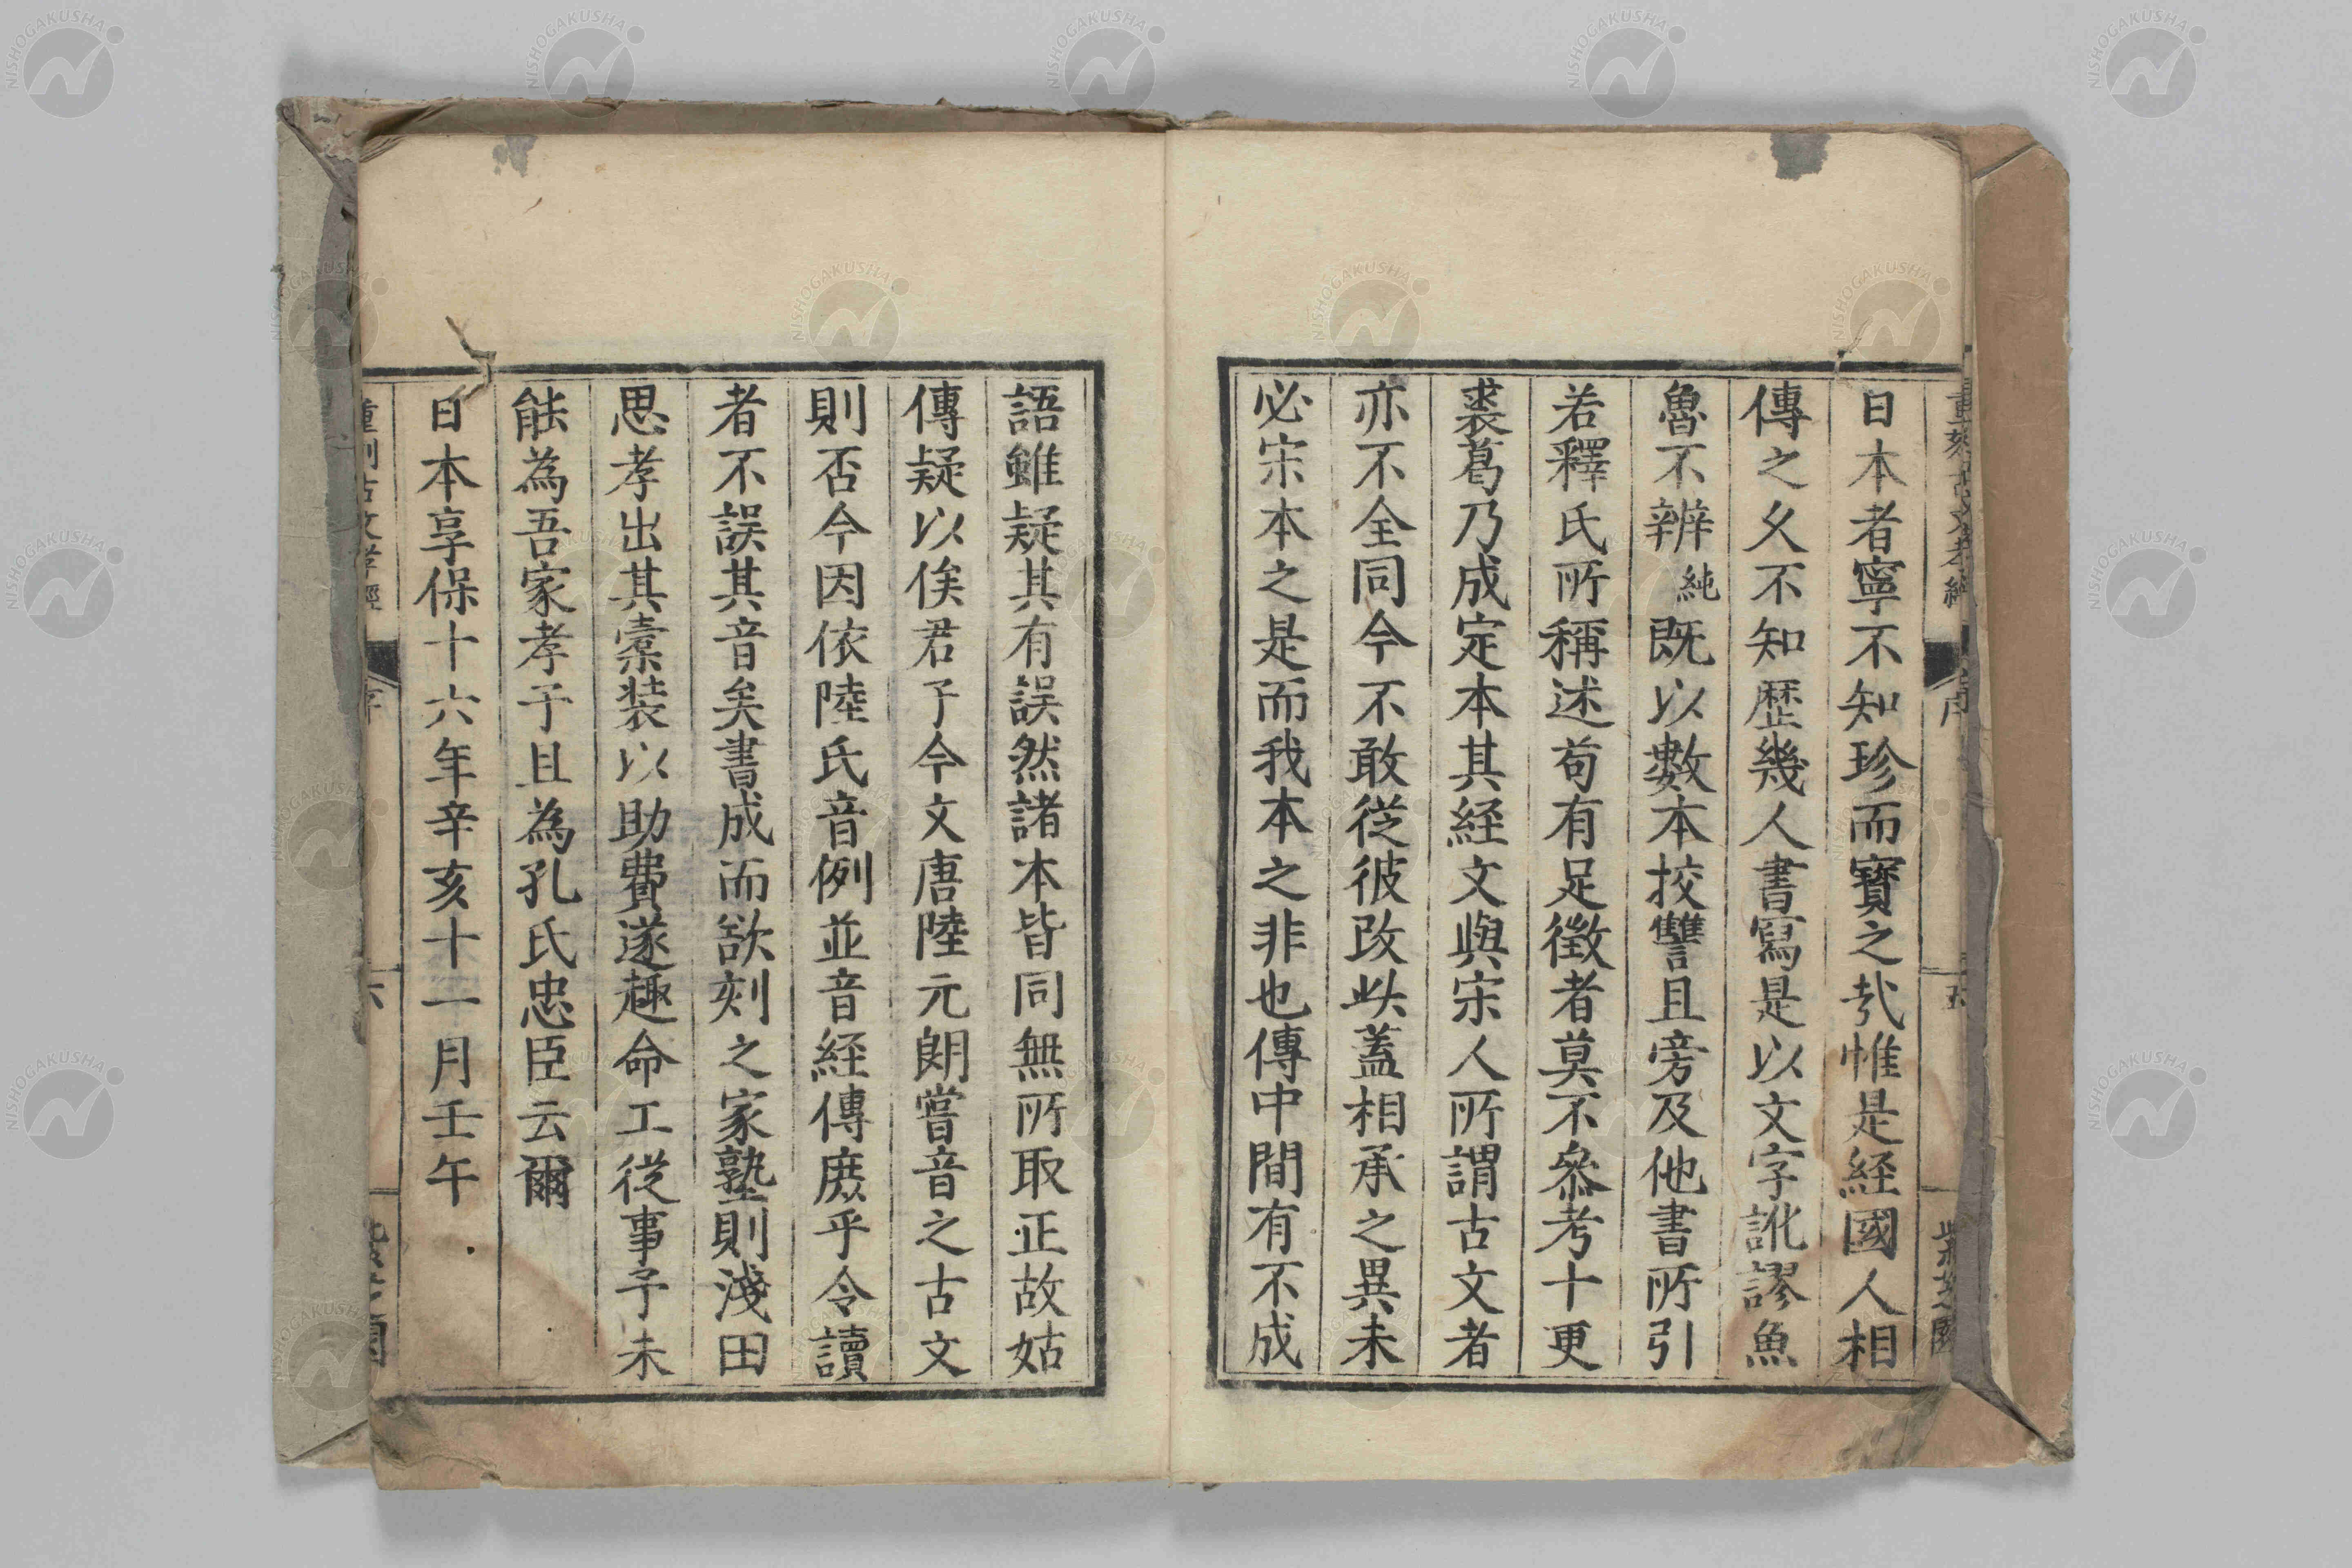 日本者寧不知珍而寶之哉惟是経國人相
傳之久不知歴幾人書寫是以文字訛謬魚
魯不辨純既以數本挍讐且旁及他書所引
若釋氏所稱述苟有足徴者莫不叅考十更
裘葛乃成定本其経文與宋人所謂古文者
亦不全同今不敢從彼改此蓋相承之異未
必宋本之是而我本之非也傳中間有不成
語雖疑其有誤然諸本皆同無所取正故姑
傳疑以俟君子今文唐陸元朗嘗音之古文
則否今因依陸氏音例並音経傳庶乎令讀
者不誤其音矣書成而欲刻之家塾則淺田
思孝出其槖装以助費遂趣命工從事予未
能為吾家孝子且為孔氏忠臣云爾
日本享保十六年辛亥十一月壬午
重刻古文孝經
序
六
NISHOGAKUSHA